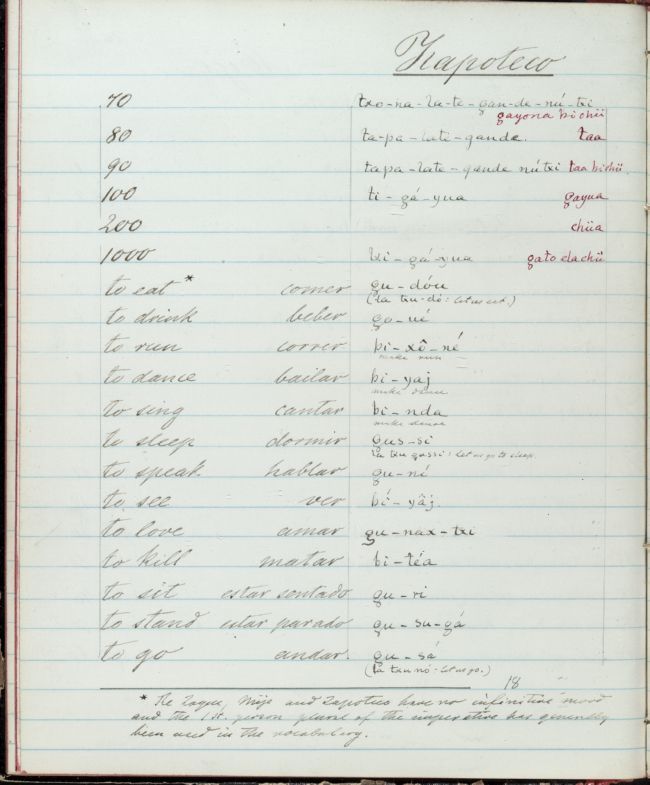 Zapoteco
70 txo-na-la-te-gan-de-nú-txi
gayona bichii
80 ta-pa-late-gande. taa
90 tapa-late-gande nútxi taa bichii.
100 ti-gá-yua gayua
200 chüa
1000 txi-gá-yua gato elachii
to eat * comer gu-dóu
(la txu-dó: let us eat.)
to drink beber go-ué
to run correr bi-xô-né
make run
to dance bailar bi-yaj
make dance
to sing cantar bi-nda
make dance
to sleep dormir gus-si
la txu gassi: let us go to sleep.
to speak hablar gu-né
to see ver bí-yâj.
to love amar gu-nax-txi
to kill matar bi-téa
to sit estar sentado gu-ri
to stand estar parado gu-su-gá
to go andar. gu-sá
(la txu nó - let us go.)
18
* The Zoque, Mije and Zapoteco have no infinitive mood
and the 1st. person plural of the imperative has generally
been used in the vocabulary.